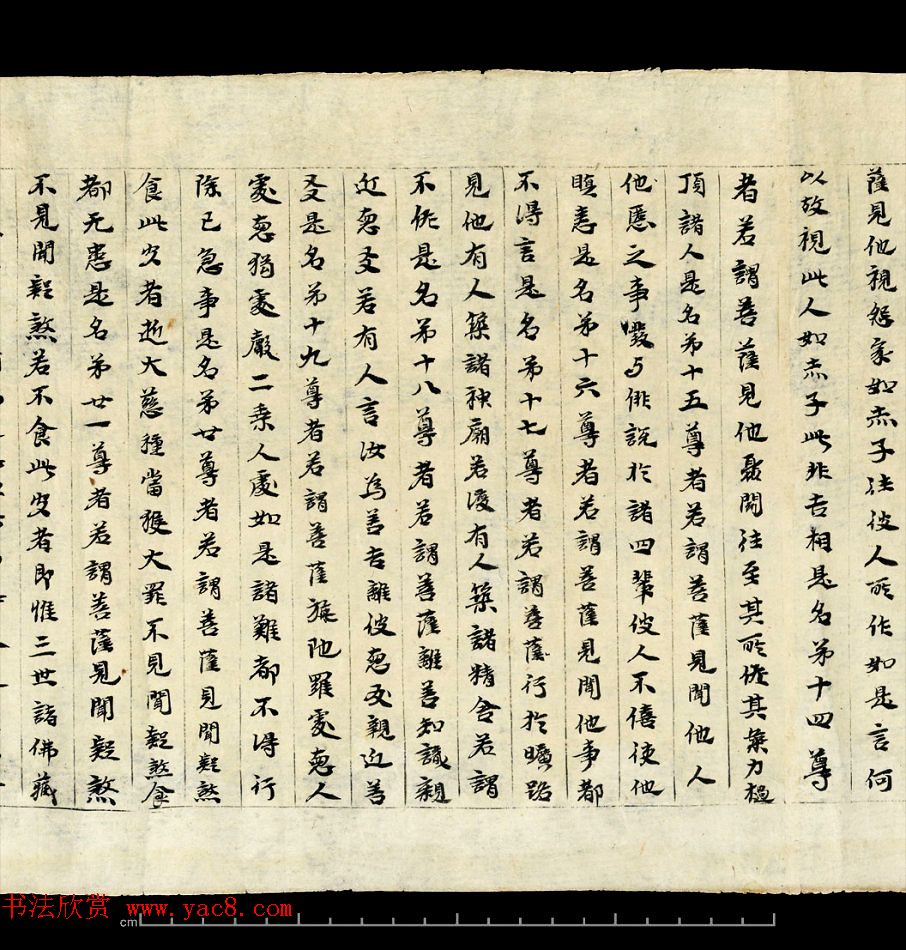 薩見他視怨家如赤子往彼人所作如是言何
以故視此人如赤子此非吉相是名弟十四尊
者若謂菩薩見他鬪往至其所佐其氣力檛
頂諸人是名弟十五尊者若謂菩薩見聞他人
他匿之事發与俳說於諸四輩彼人不僖使他
瞋恚是名弟十六尊者若謂菩薩見聞他事都
不得言是名弟十七尊者若謂菩薩行於曠路
見他有人築諸神廟若復有人築諸精舍若謂
不佐是名弟十八尊者若謂菩薩離善知識親
近惡友若有人言汝為善吉離彼惡友親近善
友是名弟十九尊者若謂菩薩旃陀羅處惡人
處惡狗處廠二乘人處如是諸難都不得行
除已急事是名弟廿尊者若謂菩薩見聞疑煞
食此宍者逝大慈種當獲大罪不見聞疑煞食
都无患是名弟廿一尊者若謂菩薩見聞疑煞
不見聞疑煞若不食此宍者即惟三世諸佛藏
书法欣赏 www.yac8.com
cm